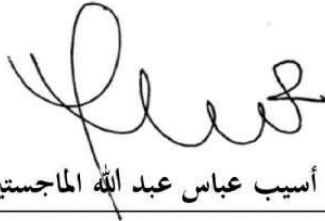 أسيب عباس عبد الله الماجستي